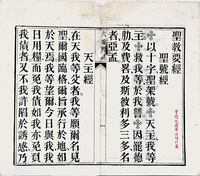 聖教要經
聖號經
以十字聖架號天主我等
主救我等於我讐因罷德
肋及費畧及斯彼利多三多名
者亞孟
天主經
在天我等父者我等願爾名見
聖爾國臨格爾旨承行於地如
於天焉我等望爾今日與我我
日用糧而免我債如我亦免負
我債者又不我許陷於誘感乃